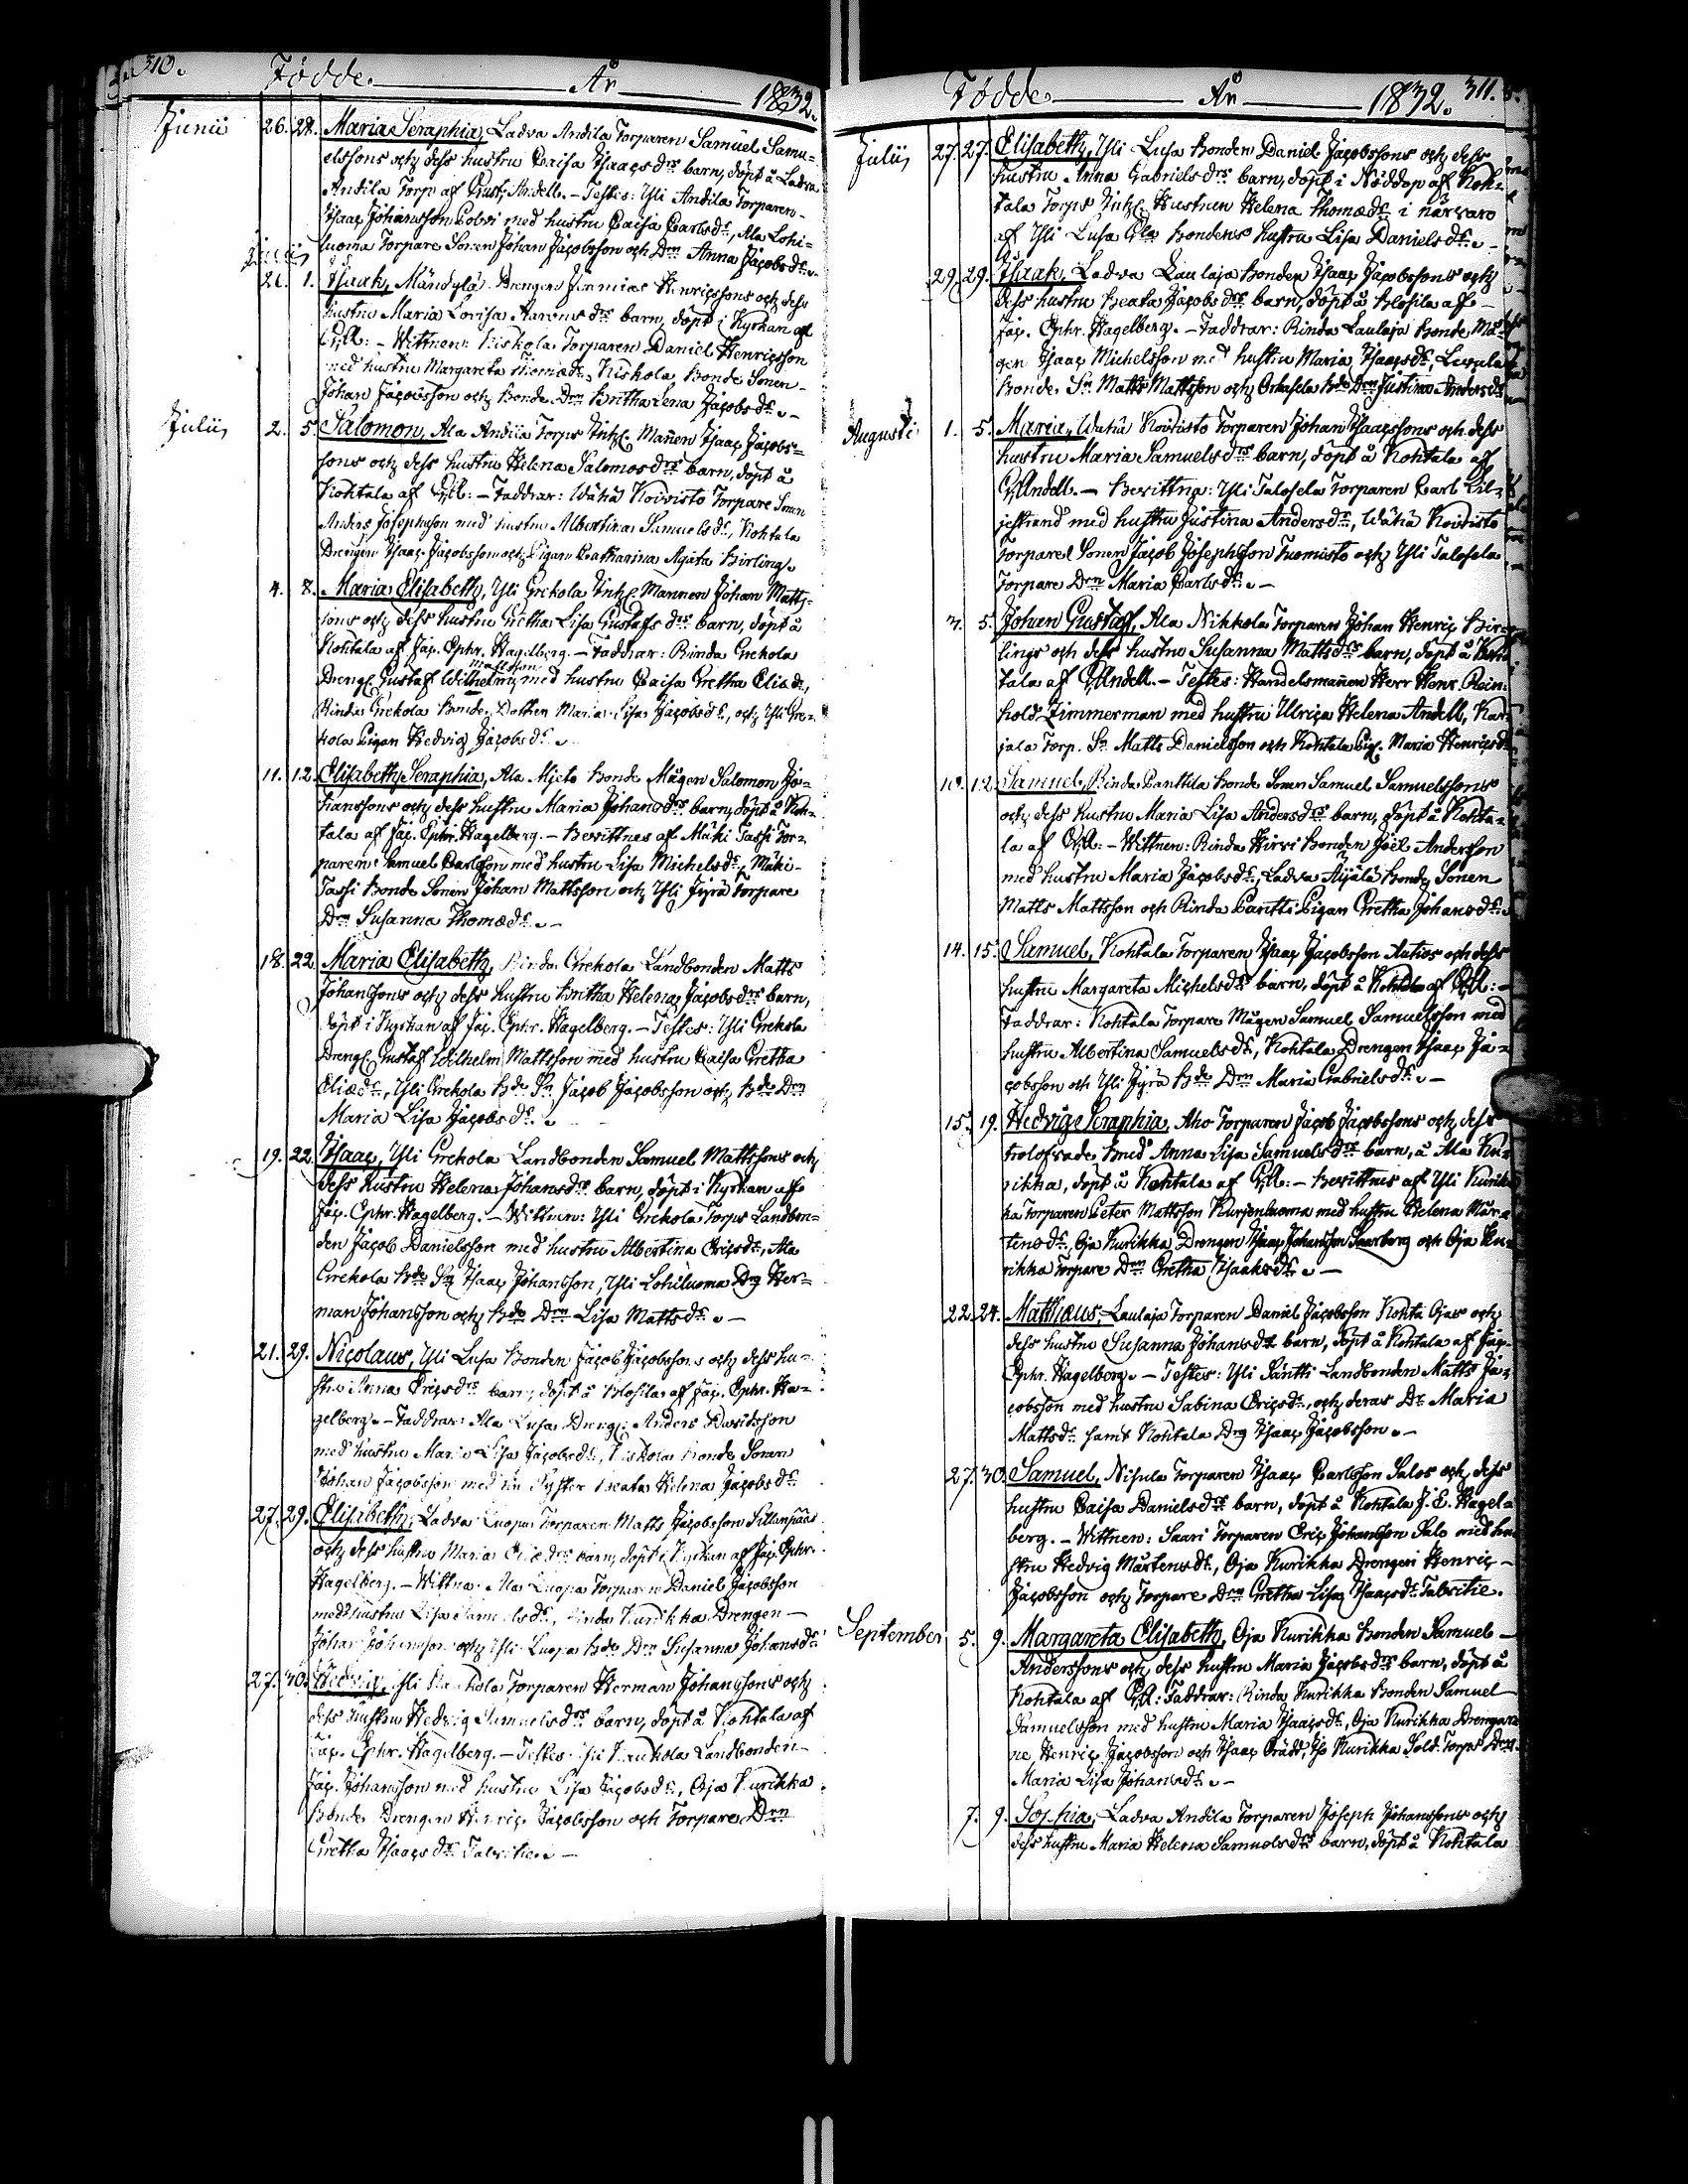 310.
Födde. År 1832.
Junii 26. 28. Maria Seraphia, Ladva Andila Torparen Samuel Samu-
elssons och dess hustru Caisa Isaacs drs barn, döpt å Ladva
Andila Torp af Gust. Andell. – Testes: Yli Andila Torparen
Isaac Johansson med hustru Caisa Carlsdr, Ala Lohi-
luoma Torpare Sonen Johan Jacobsson och Drn Anna Jacobsdr. –
Junii
26. 1. Isaak, Mändylä Drengen Jeremias Henricssons och dess
hustru Maria Lovisa Aarons drs barn, döpt i Kyrkan af
G. A: – Wittnen: Kiskola Torparen Daniel Henricsson
med hustru Margareta Thomædr, Kiskola Bonde Sonen
Johan Jacobsson och Bonde Drn Britha Lena Jacobsdr. –
Julii 2. 5. Salomon, Ala Andila Torps Inhs. Mannen Isaac Jacobs-
sons och dess hustru Helena Salomos drs barn, döpt å
Kohtala af G. A: – Faddrar: Wähä Koivisto Torpare Sonen
Anders Josephsson med hustru Albertina Samuelsdr, Kohtala
Drengen Isaac Jacobsson och Pigan Catharina Agata Birling.
4. 8. Maria Elisabeth, Yli Grekola Inhs. Mannen Johan Matts-
sons och dess hustru Gretha Lisa Gustafs drs barn, döpt å
Kohtala af Jac. Ephr. Hagelberg. – Faddrar: Rinda Grekola
Drengs. Gustaf Wilhelm Mattsson med hustru Caisa Gretha Eliædr,
Rinda Grekola Bonde Dottren Maria Lisa Jacobsdr, och Yli Gre-
kola Pigan Hedvig Jacobsdr. –
11. 12. Elisabeth Seraphia, Ala Mjeto Bonde Mågen Salomon Jo-
hanssons och dess hustru Maria Johans drs barn, döpt å Koh-
tala af Jac. Ephr. Hagelberg. – Bevittnes af Mäki Tassi Tor-
paren Samuel Carlsson med hustru Lisa Michelsdr, Mäki
Tassi Bonde Sonen Johan Mattsson och Yli Jyrä Torpare
Drn Susanna Thomædr. –
18. 22. Maria Elisabeth, Rinda Grekola Landbonden Matts
Johanssons och dess hustru Britha Helena Jacobs drs barn,
döpt i Kyrkan af Jac. Ephr. Hagelberg. – Testes: Yli Grekola
Drengs. Gustaf Wilhelm Mattsson med hustru Caisa Gretha
Eliædr, Yli Grekola Bde Sn Jacob Jacobsson och Bde Drn
Maria Lisa Jacobsdr. –
19. 22. Isaac, Yli Grekola Landbonden Samuel Mattssons och
dess hustru Helena Johans drs barn, döpt i Kyrkan af
Jac. Ephr. Hagelberg. – Wittnen: Yli Grekola Torps Landbon-
den Jacob Danielsson med hustru Albertina Ericsdr, Ala
Grekola Bde Sn Isaac Johansson, Yli Lohiluoma Drg Her-
man Johansson och Bde Drn Lisa Mattsdr. –
21. 29. Nicolaus, Yli Lusa Bonden Jacob Jacobssons och dess hu-
stru Anna Erics drs barn, döpt å Blosila af Jac. Ephr. Ha-
gelberg. – Faddrar: Ala Lusa Drengs. Anders Davidsson
med hustru Maria Lisa Jacobsdr, Kiskola Bonde Sonen
Johan Jacobsson med sin Syster Beata Helena Jacobsdr
27. 29. Elisabeth, Ladva Luopa Torparen Matts Jacobsson Sillanpääs
och dess hustru Maria Eliæ drs barn, döpt i Kyrkan af Jac. Ephr.
Hagelberg. – Wittna: Ala Luopa Torparen Daniel Jacobsson
med hustru Lisa Samuelsdr, Rinda Kurikka Drengen
Johan Johansson och Yli Luopa Bde Drn Susanna Johansdr
27. 30. Hedvig, Yli Torparen Herman Johanssons och
dess hustru Hedvig Samuels drs barn, döpt å Kohtala af
Jac. Ephr. Hagelberg. – Testes: Yli Landbonden
Jac. Johansson med hustru Lisa Jacobsdr, Oja Kurikka
Bonde Drengen Henric Jacobsson och Torpare Drn
Gretha Isaacsdr Talvitie. –
Födde År 1832. 311.
Julii 27. 27. Elisabeth, Yli Lusa Bonden Daniel Jacobssons och dess
hustru Anna Gabriels drs barn, döpt i Nöddop af Koh-
tala Torps Inhs. Hustrun Helena Thomædr i närvaro
af Yli Lusa Gla Bondens hustru Lisa Danielsdr. –
29. 29. Isaak, Ladva Laulaja Bonden Isaac Jacobssons och
dess hustru Beata Jacobs drs barn, döpt å Blosila af
Jac. Ephr. Hagelberg. – Faddrar: Rinda Laulaja Bonde Må-
gen Isaac Michelsson med hustru Maria Isaacsdr,
Bonde Sn Matts Mattsson och Bde Drn Justina Andersdr
Augusti 1. 5. Maria, Wähä Koivisto Torparen Johan Isaacssons och dess
hustru Maria Samuels drs barn, döpt å Kohtala af
G. Andell. – Bevittna: Yli Talosela Torparen Carl Lil-
jestrand med hustru Justina Andersdr, Wähä Koivisto
Torpare Sonen Jacob Josephsson Tuomisto och Yli Talosela
Torpare Drn Maria Carlsdr. –
3. 5. Johan Gustaf, Ala Nikkola Torparen Johan Henric Bir-
lings och dess hustru Susanna Matts drs barn, döpt å Koh-
tala af G. Andell. – Testes: Handelsmannen Herr Henr. Rein-
hold Zimmerman med hustru Ulrica Helena Andell, Kar-
jala Torp. Sn Matts Danielsson och Kohtala Pig. Maria Henricsdr
10. 12. Samuel, Rinda Panttila Bonde Sonen Samuel Samuelssons
och dess hustru Maria Lisa Anders drs barn, döpt å Kohta-
la af G. A: – Wittnen: Rinda Hirvi Bonden Joël Andersson
med hustru Maria Jacobsdr, Ladva Äijälä Bonde Sonen
Matts Mattsson och Rinda Pantti Pigan Gretha Johansdr.
14. 15. Samuel, Kohtala Torparen Isaac Jacobsson Autios och dess
hustru Margareta Michels drs barn, döpt å Kohtala af G. A: –
Faddrar: Kohtala Torpare Mågen Samuel Samuelsson med
hustru Albertina Samuelsdr, Kohtala Drengen Isaac Ja-
cobsson och Yli Jyrä Bde Drn Maria Gabrielsdr. –
15. 19. Hedvig Seraphia, Aho Torparen Jacob Jacobssons och dess
trolofvade Brud Anna Lisa Samuels drs barn, å Ala Ku-
rikka, döpt å Kohtala af G. A: – Bevittnes af Yli Kurik-
ka Torparen Peter Mattsson Kurjenluoma med hustru Helena Mår-
tensdr, Oja Kurikka Drengen Isaac Johansson Saarberg och Oja Ku-
rikka Torpare Drn Gretha Isaaksdr. –
22. 24. Mathæus, Laulaja Torparen Daniel Jacobsson Kohta Ojas och
dess hustru Susanna Johans drs barn, döpt å Kohtala af Jac.
Ephr. Hagelberg. – Testes: Yli Säntti Landbonden Matts Ja-
cobsson med hustru Sabina Ericsdr, och deras Dr Maria
Mattsdr samt Kohtala Drg Isaac Jacobsson. –
27. 30. Samuel, Nisula Torparen Isaac Carlsson Salos och dess
hustru Caisa Daniels drs barn, döpt å Kohtala J. E. Hagel-
berg. – Wittnen: Saari Torparen Eric Johansson Salo med hu-
stru Hedvig Mårtensdr, Oja Kurikka Drengen Henric
Jacobsson och Torpare Drn Gretha Lisa Isaacsdr Talvitie.
September 5. 9. Margareta Elisabeth, Oja Kurikka Bonden Samuel
Anderssons och dess hustru Maria Jacobs drs barn, döpt å
Kohtala af G. A: Faddrar: Rinda Kurikka Bonden Samuel
Samuelsson med hustru Maria Isaacsdr, Oja Kurikka Drengar-
ne Henric Jacobsson och Isaac Brädd, Iso Kurikka Sold. Torps Drn
Maria Lisa Johansdr. –
7. 9. Sophia, Ladva Andila Torparen Joseph Johanssons och
dess hustru Maria Helena Samuels drs barn, döpt å Kohtala